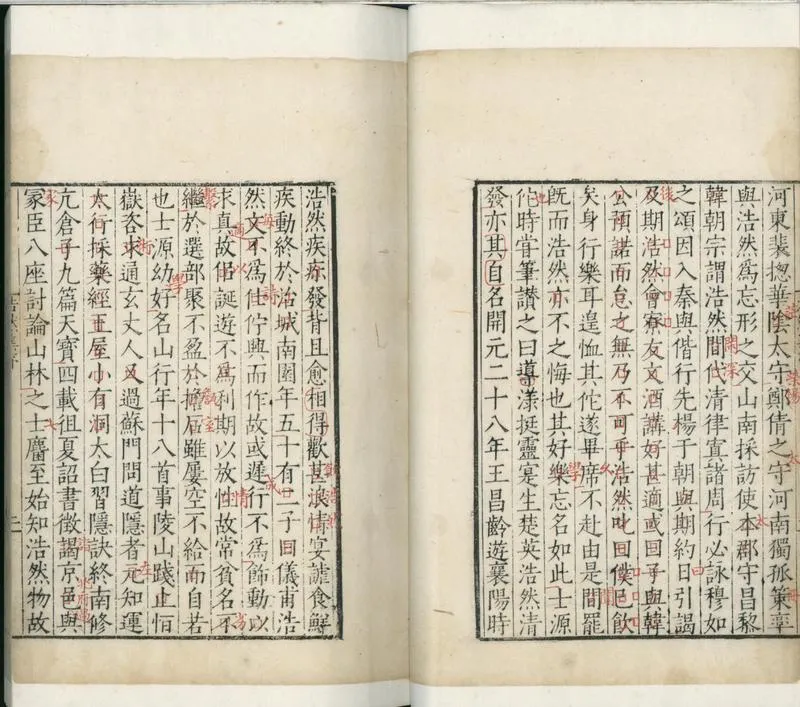 河東裴揔華陰太守鄭倩之守河南獨孤策率
與浩然為忘形之交山南採訪使本郡守昌黎
韓朝宗謂浩然間代清律寘諸周行必詠穆如
之頌因入秦與偕行先楊于朝與期約日引謁
及期浩然會寮友文酒講好甚適或曰子與韓
公預諾而怠之無乃不可乎浩然叱曰僕已飲
矣身行樂耳遑恤其佗遂畢席不赴由是間罷
既而浩然亦不之悔也其好樂忘名如此士源
佗時嘗筆讃之曰導漾挺靈寔生楚英浩然清
發亦其自名開元二十八年王昌齡遊襄陽時
浩然疾疹發背且愈相得歡甚浪情宴謔食鮮
疾動終於冶城南園年五十有二子曰儀甫浩
然文不為仕佇興而作故或遲行不為飾動以
求真故似誕遊不為利期以放性故常貧名不
繼於選部聚不盈於擔石雖屢空不給而自若
也士源幼好名山行年十八首事陵山踐止恒
嶽咨求通玄丈人又過蘇門問道隱者元知運
太行採藥經王屋小有洞太白習隱訣終南修
亢倉子九篇天寶四載徂夏詔書徵謁京邑與
冢臣八座討論山林之士麕至始知浩然物故